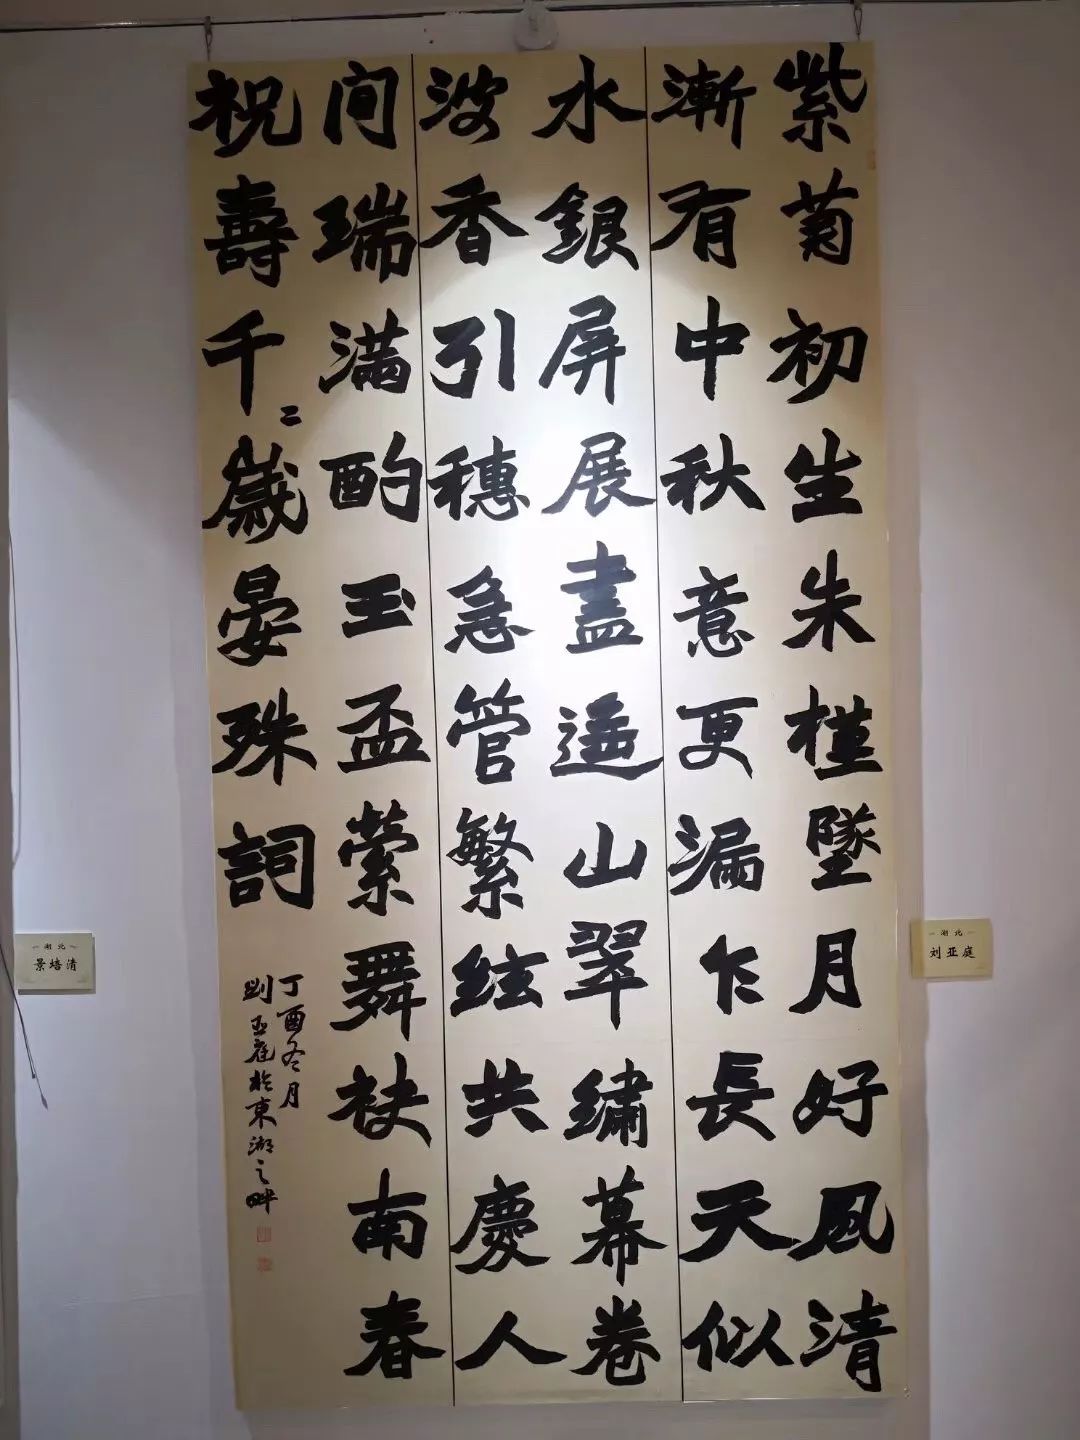 紫菊初生朱槿墜月好風清
漸有中秋意更漏乍長天似
水銀屏展盡遥山翠繡幕卷
波香引穗急管繁絃共慶人
间瑞满酌玉盃萦舞袂南春
祝壽千〻歲晏殊詞
丁酉冬月
劉亞庭於東湖之畔
湖北
刘亚庭
湖北
景培清